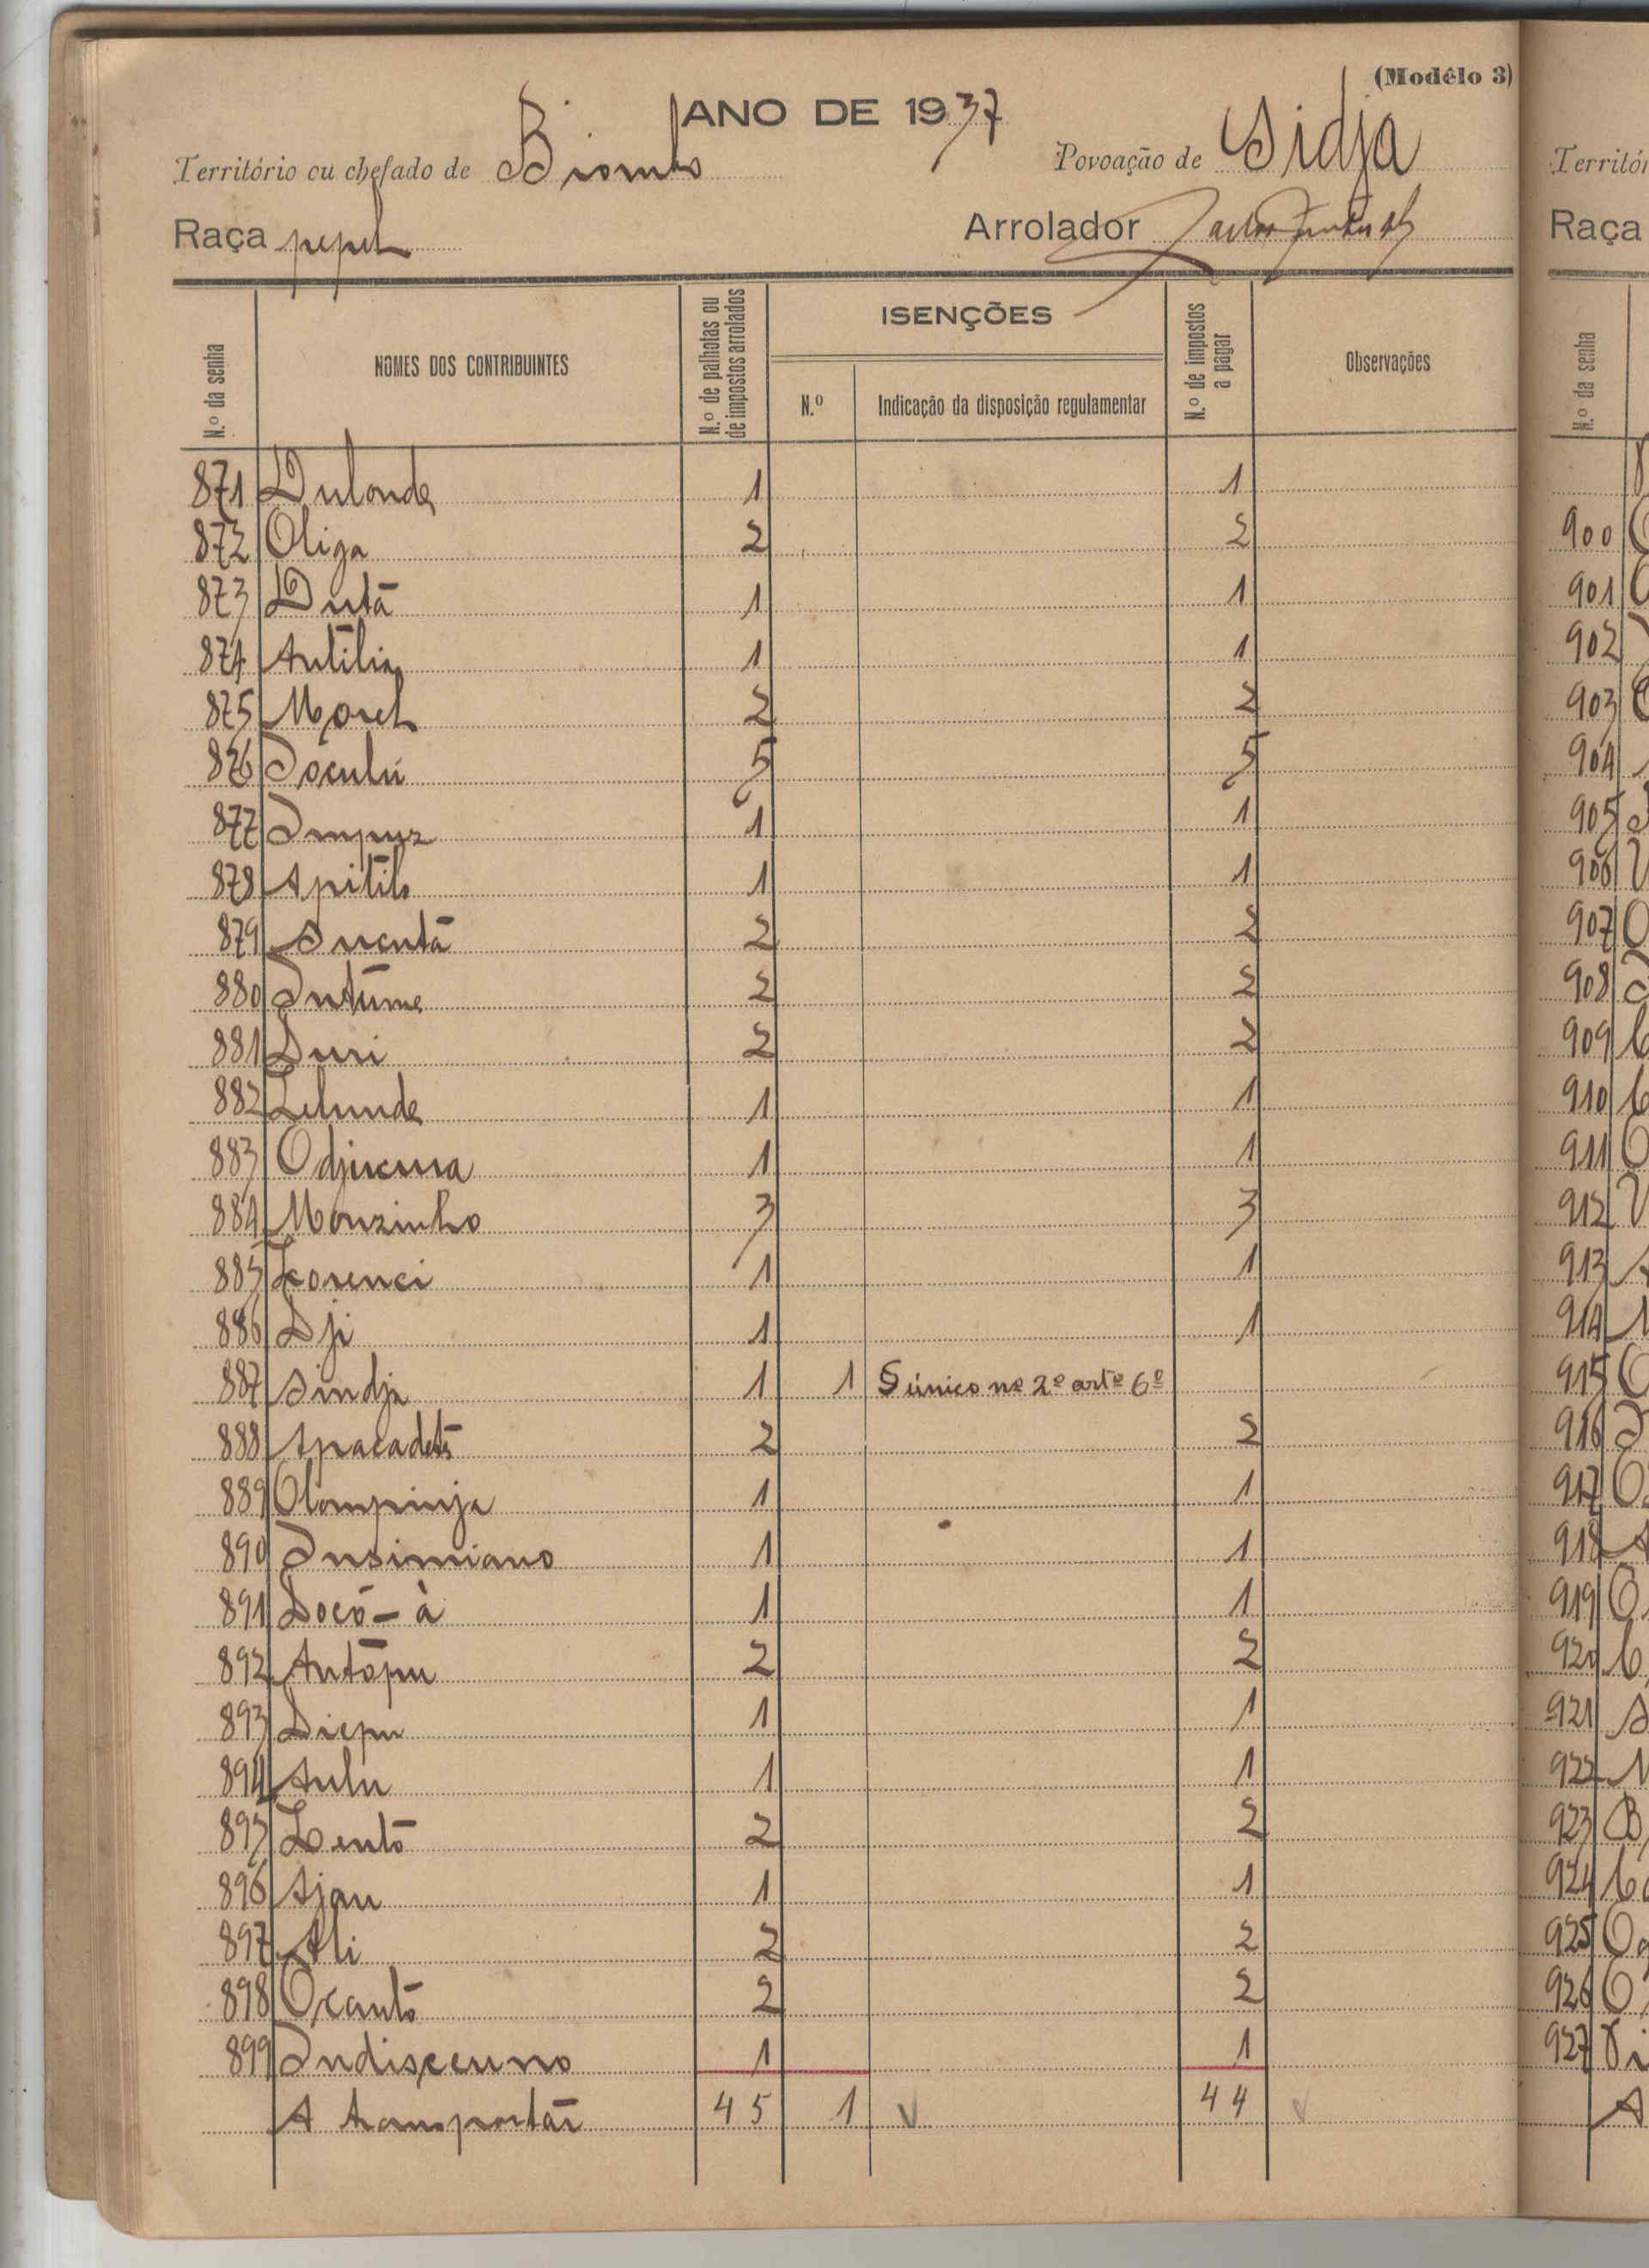 (Modêlo 3)
ANO DE 1937
Território ou chefado de Biombo Povoação de Sidja
Raça pepel Arrolador
N.º da senha NOMES DOS CONTRIBUINTES N.º de palhotas ou de impostos arrolados ISENÇÕES N.º de impostos a pagar Observações
N.º Indicação da disposição regulamentar
871 Dulonde 1 1
872 Oliga 2 2
873 Dutã 1 1
874 Antilia 1 1
875 2 2
876 5 5
877 1 1
878 Apitilo 1 1
879 2 2
880 Intume 2 2
881 Duri 2 2
882 Lelunde 1 1
883 1 1
884 Monzinho 3 3
885 1 1
886 Dji 1 1
887 Sindja 1 1 § único nº 2º artº 6º
888 2 2
889 Olompinja 1 1
890 Insimiano 1 1
891 Docó - à 1 1
892 Antópu 2 2
893 1 1
894 Aulu 1 1
895 2 2
896 Ajau 1 1
897 Ali 2 2
898 Ocantó 2 2
899 1 1
A transportar 45 1 44
Territór
Raça
N.º da senha
900
901
902
903
904
905
906
907
908
909
910
911
912
913
914
915
916
917
918
919
920
921
922
923
924
925
926
927
A